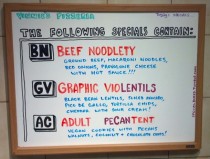 THE FOLLOWING SPECIALS CONTAIN:
BN BEEF NOODLETY
GROUND BEEF, MACARONI NOODLES,
RED ONIONS, PROVOLONE CHEESE
WITH HOT SAUCE!!!
GV GRAPHIC VIOLENTILS
BLACK BEAN LENTILS,
PICO DE GALLO, TORTILLA CHIPS,
WITH SOUR CREAM!
AC ADULT PECANTENT
VEGAN COOKIES WITH PECANS
WALNUTS, COCONUT + CHOCOLATE CHIPS!